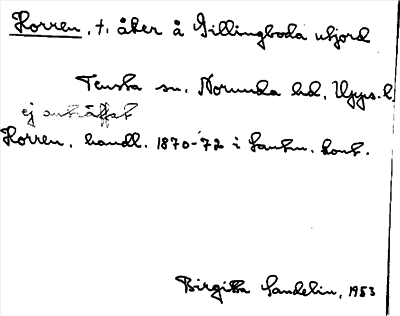 Horren, t. åker å Gillingboda utjord
Tensta sn, Norunda hd, Upps. l.
ej anträffat
Horren, handl. 1870-72 i Lantm. kont.
Birgitta Sandelin, 1953